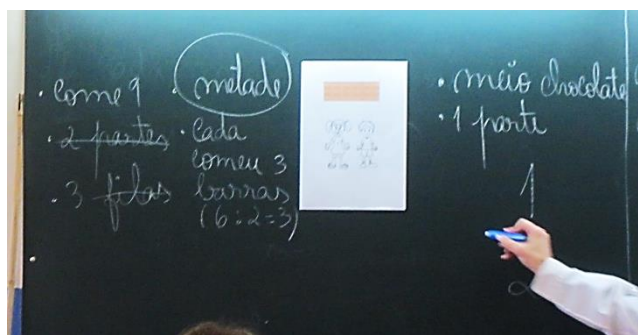 · Come 9
· 2 partes
· 3 filas
· metade
· Cada
comeu 3
barras
(6 : 2 = 3)
· meio chocolate
· 1 parte
1